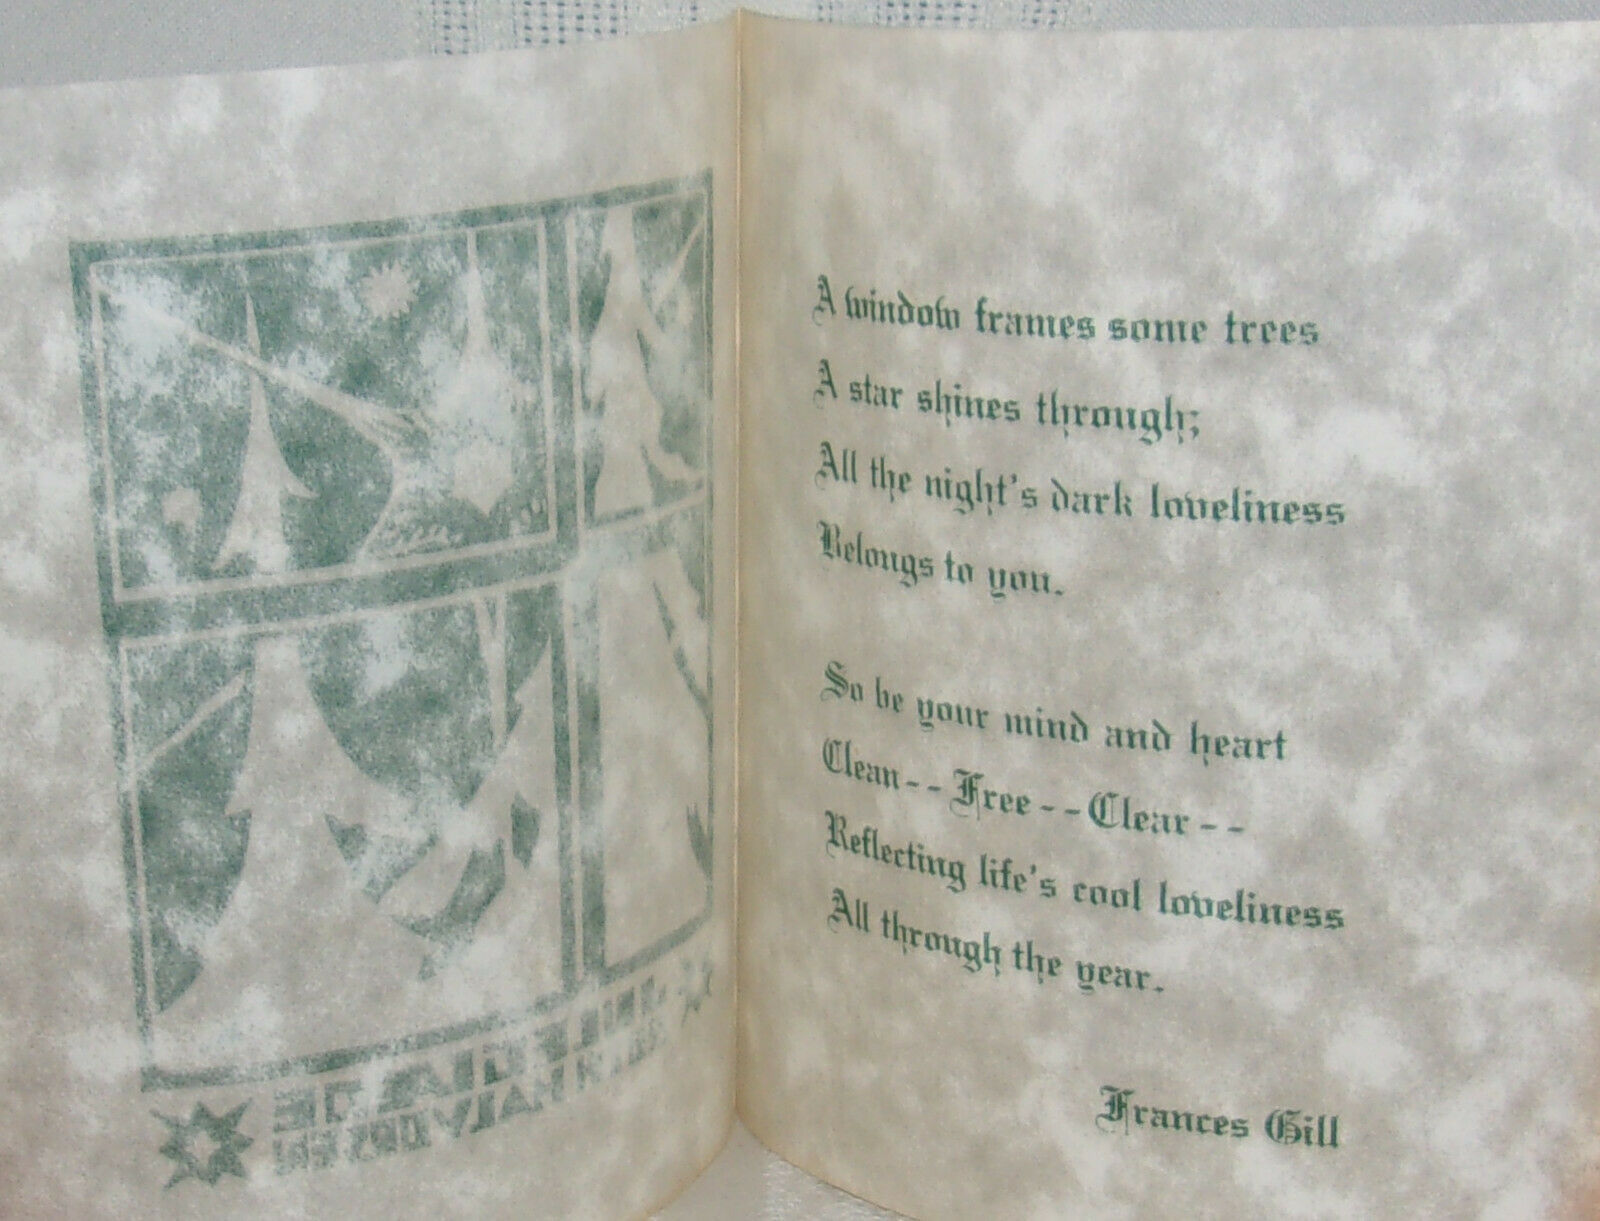 A window frames some trees
A star shines through;
All the night's dark loveliness
Belongs to you.
So be your mind and heart
Clean-- Free--Clear--
Reflecting life's cool loveliness
All through the year.
Frances Gill